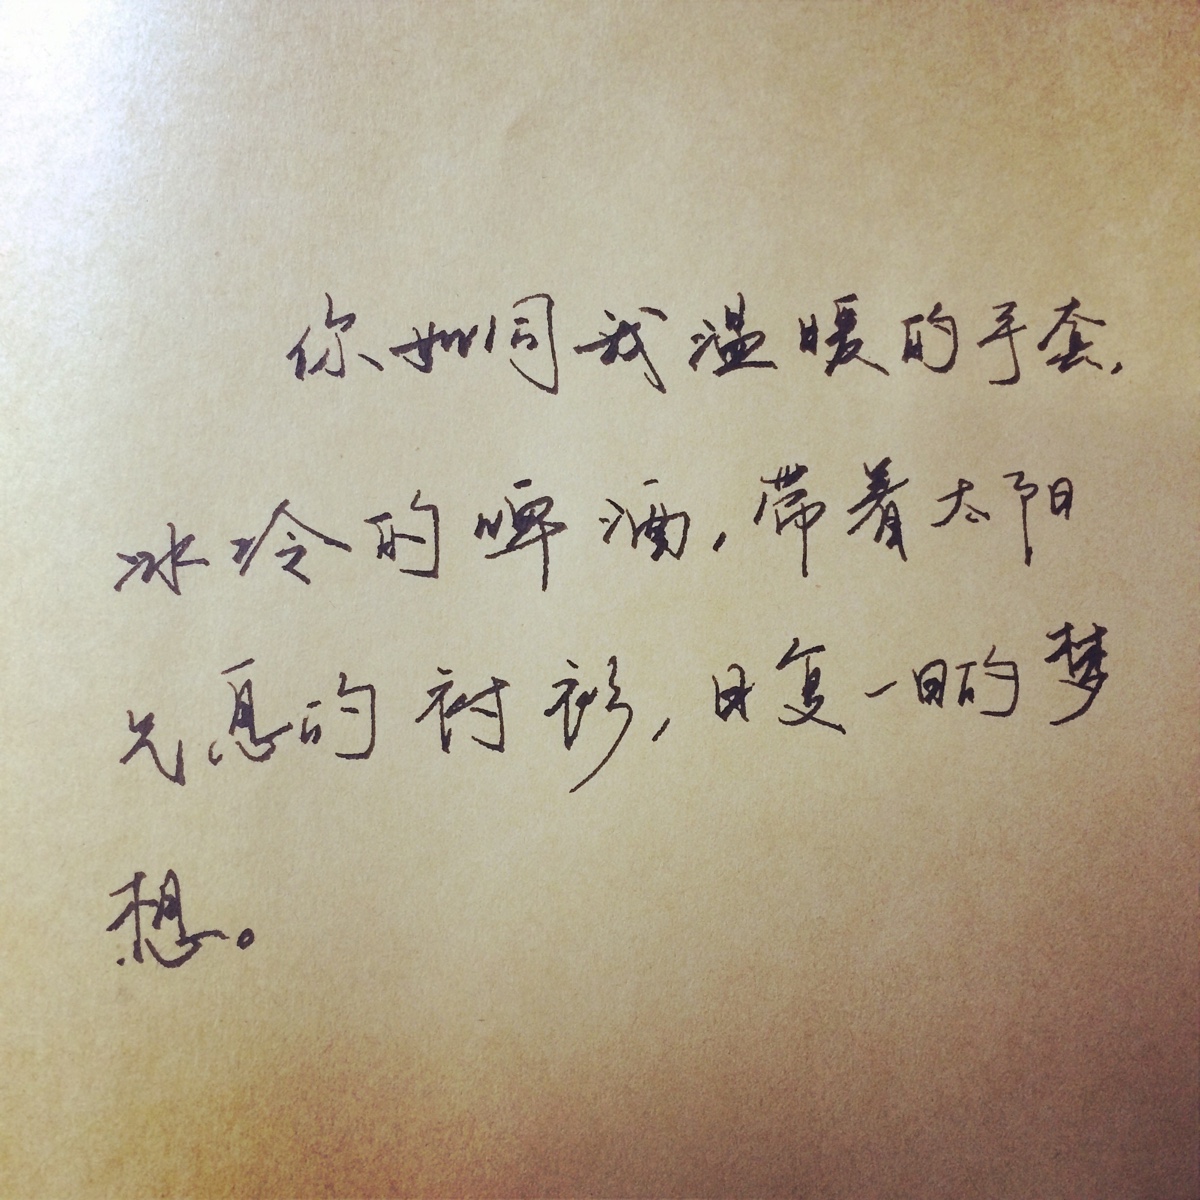 你如同我温暖的手套,
冰冷的啤酒,带着太阳
气息的衬衫,日复一日的梦
想。